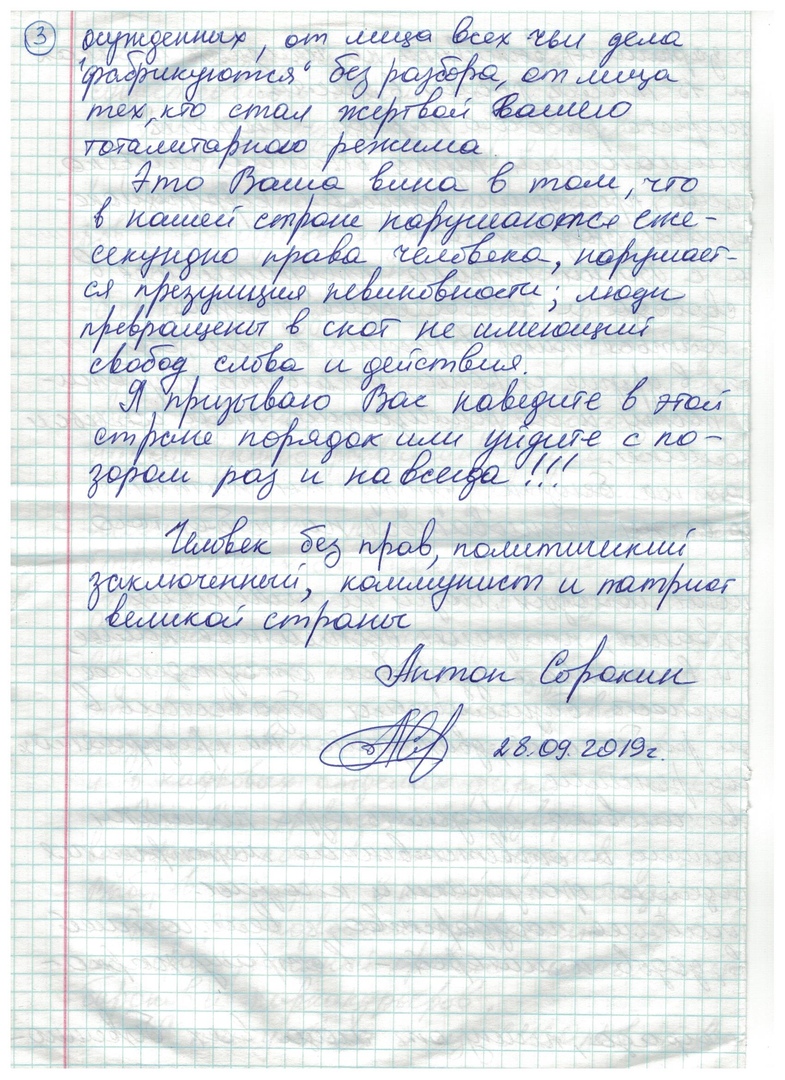 3
осужденных, от лица всех чьи дела
"фабрикуются" без разбора, от лица
тех, кто стал жертвой Вашего
тоталитарного режима.
Это Ваша вина в том, что
в нашей стране нарушаются еже-
секундно права человека, нарушает-
ся презумпция невиновности; люди
превращены в скот не имеющий
свобод слова и действия.
Я призываю Вас наведите в этой
стране порядок или уйдите с по-
зором раз и навсегда!!!
Человек без прав, политический
заключенный, коммунист и патриот
великой страны
Антон Сорокин
28.09.2019г.